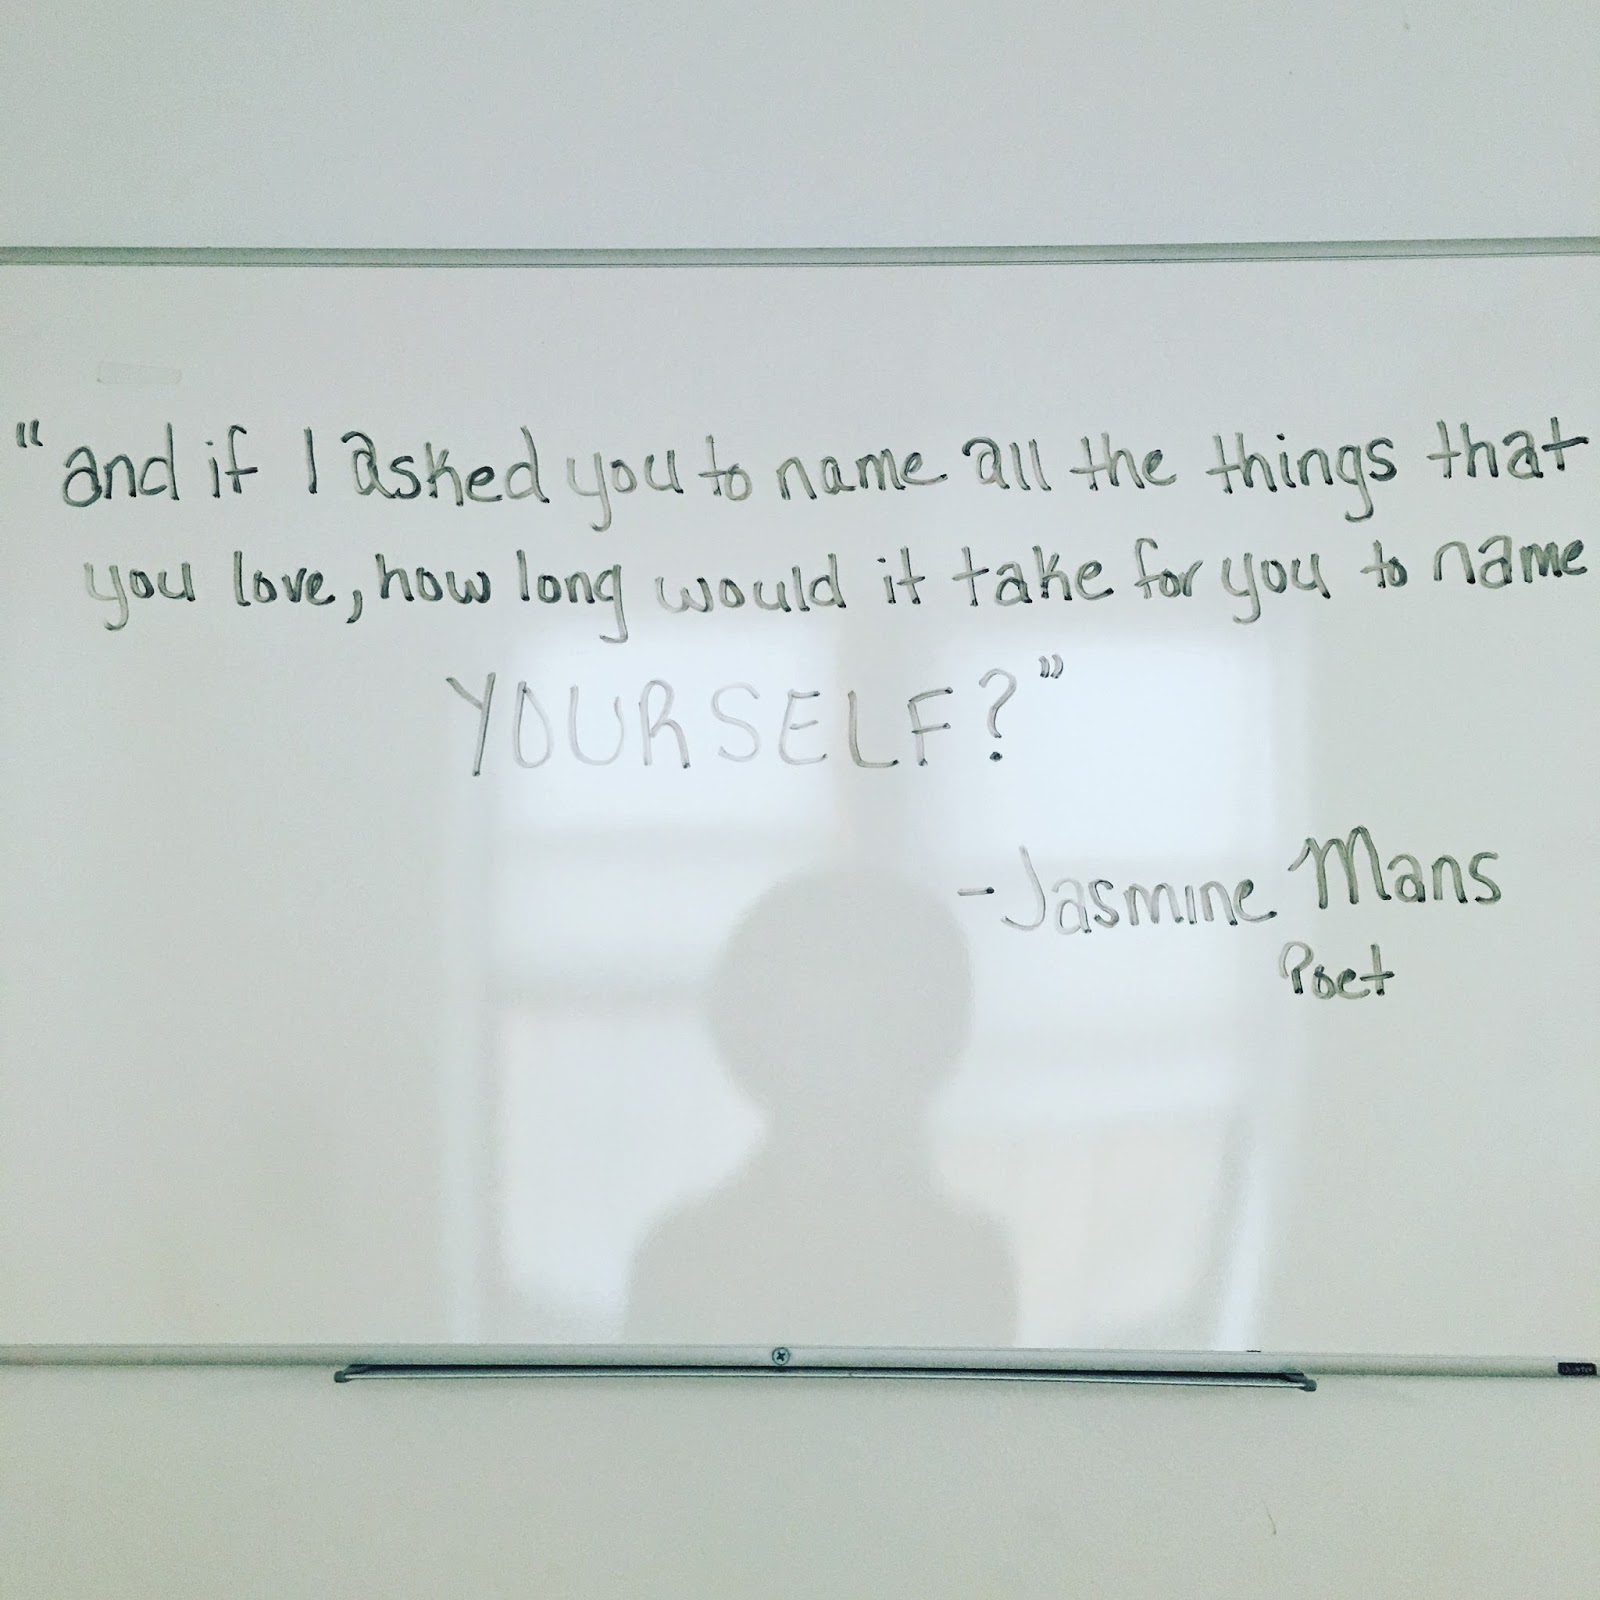 “and if I asked you to name all the things that
you love, how long would it take for you to name
YOURSELF?”
-Jasmine Mans
Poet